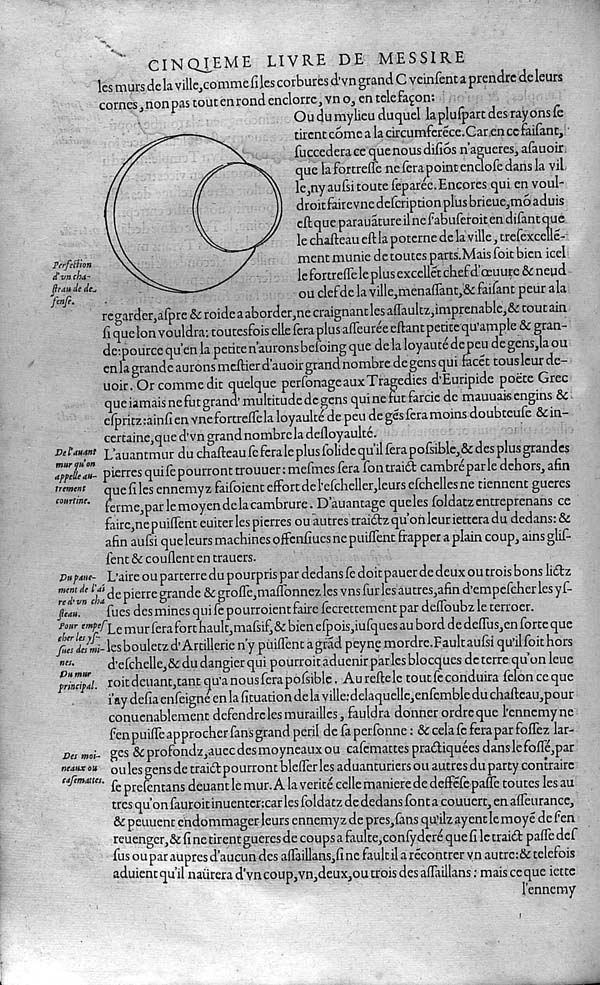 CINQIEME LIVRE DE MESSIRE
les murs de la ville, comme ſi les corbures d'vn grand C veinſent a prendre de leurs
cornes, non pas tout en rond enclorre, vn o, en tele façon:
Ou du mylieu duquel la pluſpart des rayons ſe
tirent cõme a la circumferẽce. Car en ce faiſant,
ſuccedera ce que nous diſiõs n'agueres, aſauoir
que la fortreſſe ne ſera point encloſe dans la vil
le, ny auſsi toute ſeparée. Encores qui en voul-
droit faire vne deſcription plus brieue, mõ aduis
eſt que parauãture il ne ſ'abuſeroit en diſant que
le chaſteau eſt la poterne de la ville, treſexcellẽ-
ment munie de toutes parts. Mais ſoit bien icel
le fortreſſe le plus excellẽt chef d'œuure & neud
ou clef de la ville, menaſſant, & faiſant peur a la
Perfection
d'vn cha-
ſteau de de-
fenſe.
regarder, aſpre & roide a aborder, ne craignant les aſſaultz, imprenable, & tout ain
ſi que lon vouldra: toutesfois elle ſera plus aſſeurée eſtant petite qu'ample & gran-
de: pource qu'en la petite n'aurons beſoing que de la loyauté de peu de gens, la ou
en la grande aurons meſtier d'auoir grand nombre de gens qui facẽt tous leur de-
uoir. Or comme dit quelque perſonage aux Tragedies d'Euripide poëte Grec
que iamais ne fut grand' multitude de gens qui ne fut farcie de mauuais engins &
eſpritz: ainſi en vne fortreſſe la loyaulté de peu de gẽs ſera moins doubteuſe & in-
certaine, que d'vn grand nombre la deſloyaulté.
De l'auant
mur qu'on
appelle au-
trement
courtine.
L'auantmur du chaſteau ſe fera le plus ſolide qu'il ſera poſsible, & des plus grandes
pierres qui ſe pourront trouuer: meſmes ſera ſon traict cambré par le dehors, afin
que ſi les ennemyz faiſoient effort de l'eſcheller, leurs eſchelles ne tiennent gueres
ferme, par le moyen de la cambrure. D'auantage que les ſoldatz entreprenans ce
faire, ne puiſſent euiter les pierres ou autres traictz qu'on leur iettera du dedans: &
afin auſsi que leurs machines offenſiues ne puiſſent frapper a plain coup, ains gliſ-
ſent & coullent en trauers.
Du paue-
ment de l'ai
re d'vn cha
ſteau.
L'aire ou parterre du pourpris par dedans ſe doit pauer de deux ou trois bons lictz
de pierre grande & groſſe, maſſonnez les vns ſur les autres, afin d'empeſcher les yſ-
ſues des mines qui ſe pourroient faire ſecrettement par deſſoubz le terroer.
Pour empeſ
cher les yſ-
ſues des mi-
nes.
Du mur
principal.
Le mur ſera fort hault, maſsif, & bien eſpois, iuſques au bord de deſſus, en ſorte que
les bouletz d'Artillerie n'y puiſſent a grãd peyne mordre. Fault auſsi qu'il ſoit hors
d'eſchelle, & du dangier qui pourroit aduenir par les blocques de terre qu'on leue
roit deuant, tant qu'a nous ſera poſsible. Au reſte le tout ſe conduira ſelon ce que
i'ay deſia enſeigné en la ſituation de la ville: de laquelle, enſemble du chaſteau, pour
conuenablement defendre les murailles, fauldra donner ordre que l'ennemy ne
ſ'en puiſſe approcher ſans grand peril de ſa perſonne: & cela ſe fera par foſſez lar-
ges & profondz, auec des moyneaux ou caſemattes practiquées dans le foſſé, par
ou les gens de traict pourront bleſſer les aduanturiers ou autres du party contraire
ſe preſentans deuant le mur. A la verité celle maniere de deffẽſe paſſe toutes les au
tres qu'on ſauroit inuenter: car les ſoldatz de dedans ſont a couuert, en aſſeurance,
& peuuent endommager leurs ennemyz de pres, ſans qu'ilz ayent le moyẽ de ſ'en
reuenger, & ſi ne tirent gueres de coups a faulte, conſyderé que ſi le traict paſſe deſ
ſus ou par aupres d'aucun des aſſaillans, ſi ne fault il a rẽcontrer vn autre: & telefois
aduient qu'il naürera d'vn coup, vn, deux, ou trois des aſſaillans: mais ce que iette
Des moi-
neaux ou
caſemattes.
l'ennemy